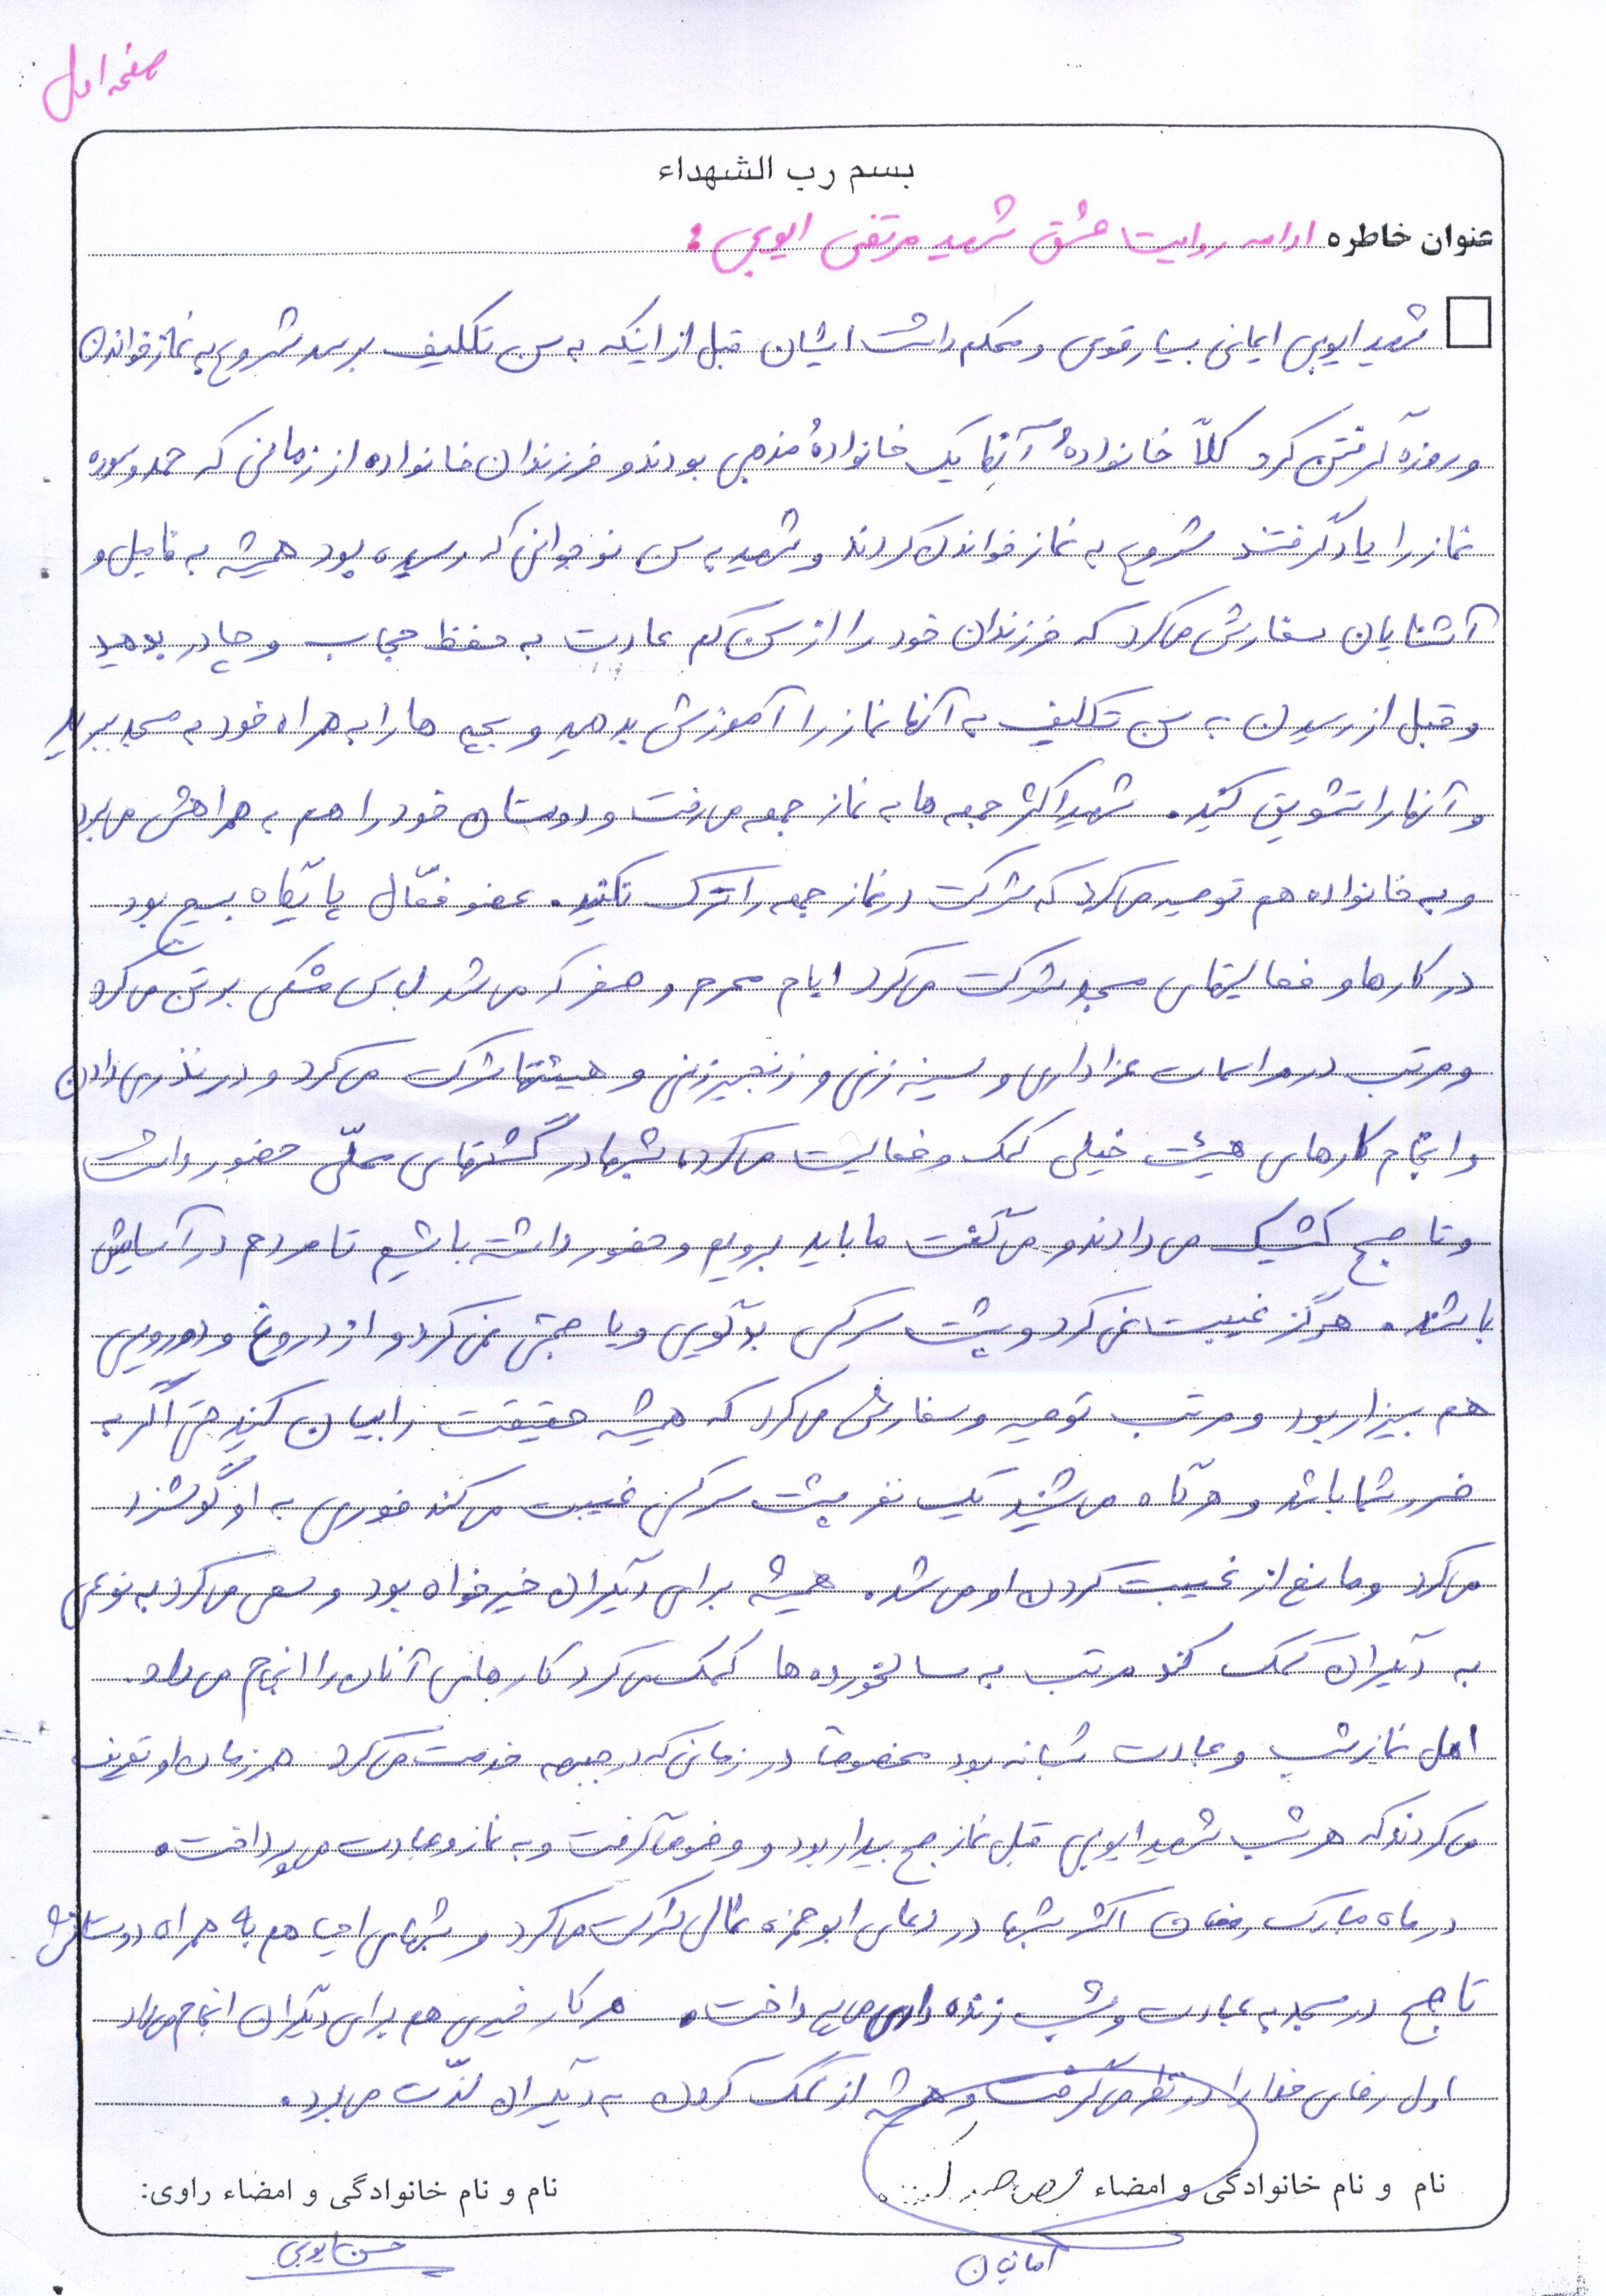 صفحه اول
بسم رب الشهداء
عنوان خاطره ادامه روایت عشق شهید مرتضی ایوبی :
شهید ایوبی ایمانی بسیار قوی و محکم داشت ایشان قبل از اینکه به سن تکلیف برسد شروع به نماز خواندن
و روزه گرفتن کرد کلاً خانوادهٔ آنها یک خانوادهٔ مذهبی بودند و فرزندان خانواده از زمانی که حمد و سوره
نماز را یاد گرفتند شروع به نماز خواندن کردند و شهید به سن نوجوانی که رسیده بود همیشه به فامیل و
آشنایان سفارش می‌کرد که فرزندان خود را از سن کم عادت به حفظ حجاب و چادر بدهید
و قبل از رسیدن به سن تکلیف به آنها نماز را آموزش بدهید و بچه ها را به همراه خود به مسجد ببرید
و آنها را تشویق کنید. شهید اکثر جمعه ها به نماز جمعه می‌رفت و دوستان خود را هم به همراهش می‌برد
و به خانواده هم توصیه می‌کرد که شرکت در نماز جمعه را ترک نکنید. عضو فعّال پایگاه بسیج بود
در کارها و فعالیتهای مسجد شرکت می‌کرد ایام محرم و صفر که می‌شد لباس مشکی بر تن می‌کرد
و مرتب در مراسمات عزاداری و سینه زنی و زنجیرزنی و هیئتها شرکت می‌کرد و در نذری دادن
و انجام کارهای هیئت خیلی کمک و فعالیت می‌کرد، شبها در گشتهای محلّی حضور داشت
و تا صبح کشیک می‌دادند و می‌گفت ما باید برویم و حضور داشته باشیم تا مردم در آسایش
باشند. هرگز غیبت نمی‌کرد و پشت سر کسی بدگویی و یا صحبتی نمی‌کرد و از دروغ و دورویی
هم بیزار بود و مرتب توصیه و سفارش می‌کرد که همیشه حقیقت را بیان کنید حتی اگر به
ضرر شما باشد و هرگاه می‌شنید یک نفر پشت سر کسی غیبت می‌کند فوری به او گوشزد
می‌کرد و مانع از غیبت کردن او می‌شد. همیشه برای دیگران خیرخواه بود و سعی می‌کرد به نوعی
به دیگران کمک کند مرتب به سالخورده ها کمک می‌کرد کارهای آنان را انجام می‌داد.
اهل نماز شب و عبادت شبانه بود مخصوصاً در زمانی که در جبهه خدمت می‌کرد همرزمان او تعریف
می‌کردند که هر شب شهید ایوبی قبل نماز صبح بیدار بود و وضو می‌گرفت و به نماز و عبادت می‌پرداخت.
در ماه مبارک رمضان اکثر شبها در دعای ابوحمزه ثمالی شرکت می‌کرد و شبهای احیا هم به همراه دوستانش
تا صبح در مسجد به عبادت و شب زنده داری می‌پرداخت. هر کار خیری هم برای دیگران انجام می‌داد
اول رضای خدا را در نظر می‌گرفت و همیشه از کمک کردن به دیگران لذّت می‌برد.
نام و نام خانوادگی و امضاء
نام و نام خانوادگی و امضاء راوی:
امانیان
حسن ایوبی